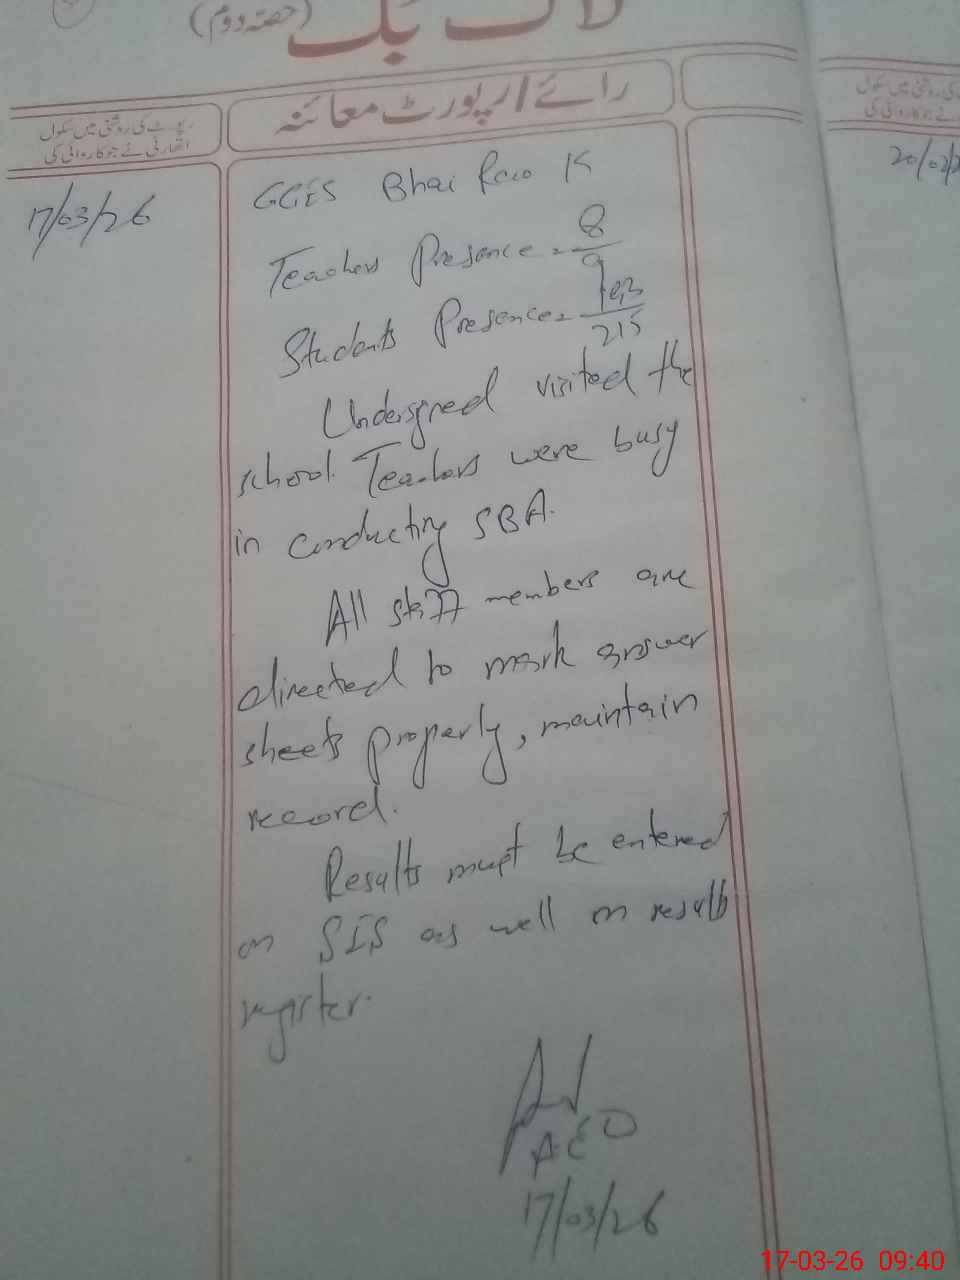 لاگ بک
(حصہ دوم)
رائے/رپورٹ معائنہ
رپورٹ کی روشنی میں سکول
اتھارٹی نے جو کاروائی کی
17/03/26
20/02/2
GGES Bhai Rao K
Teachers Presence = 8/9
Students Presence = 193/215
Undersigned visited the
school. Teachers were busy
in conducting SBA.
All staff members are
directed to mark answer
sheets properly, maintain
record.
Results must be entered
on SIS as well on result
register.
AEO
17/03/26
17-03-26 09:40